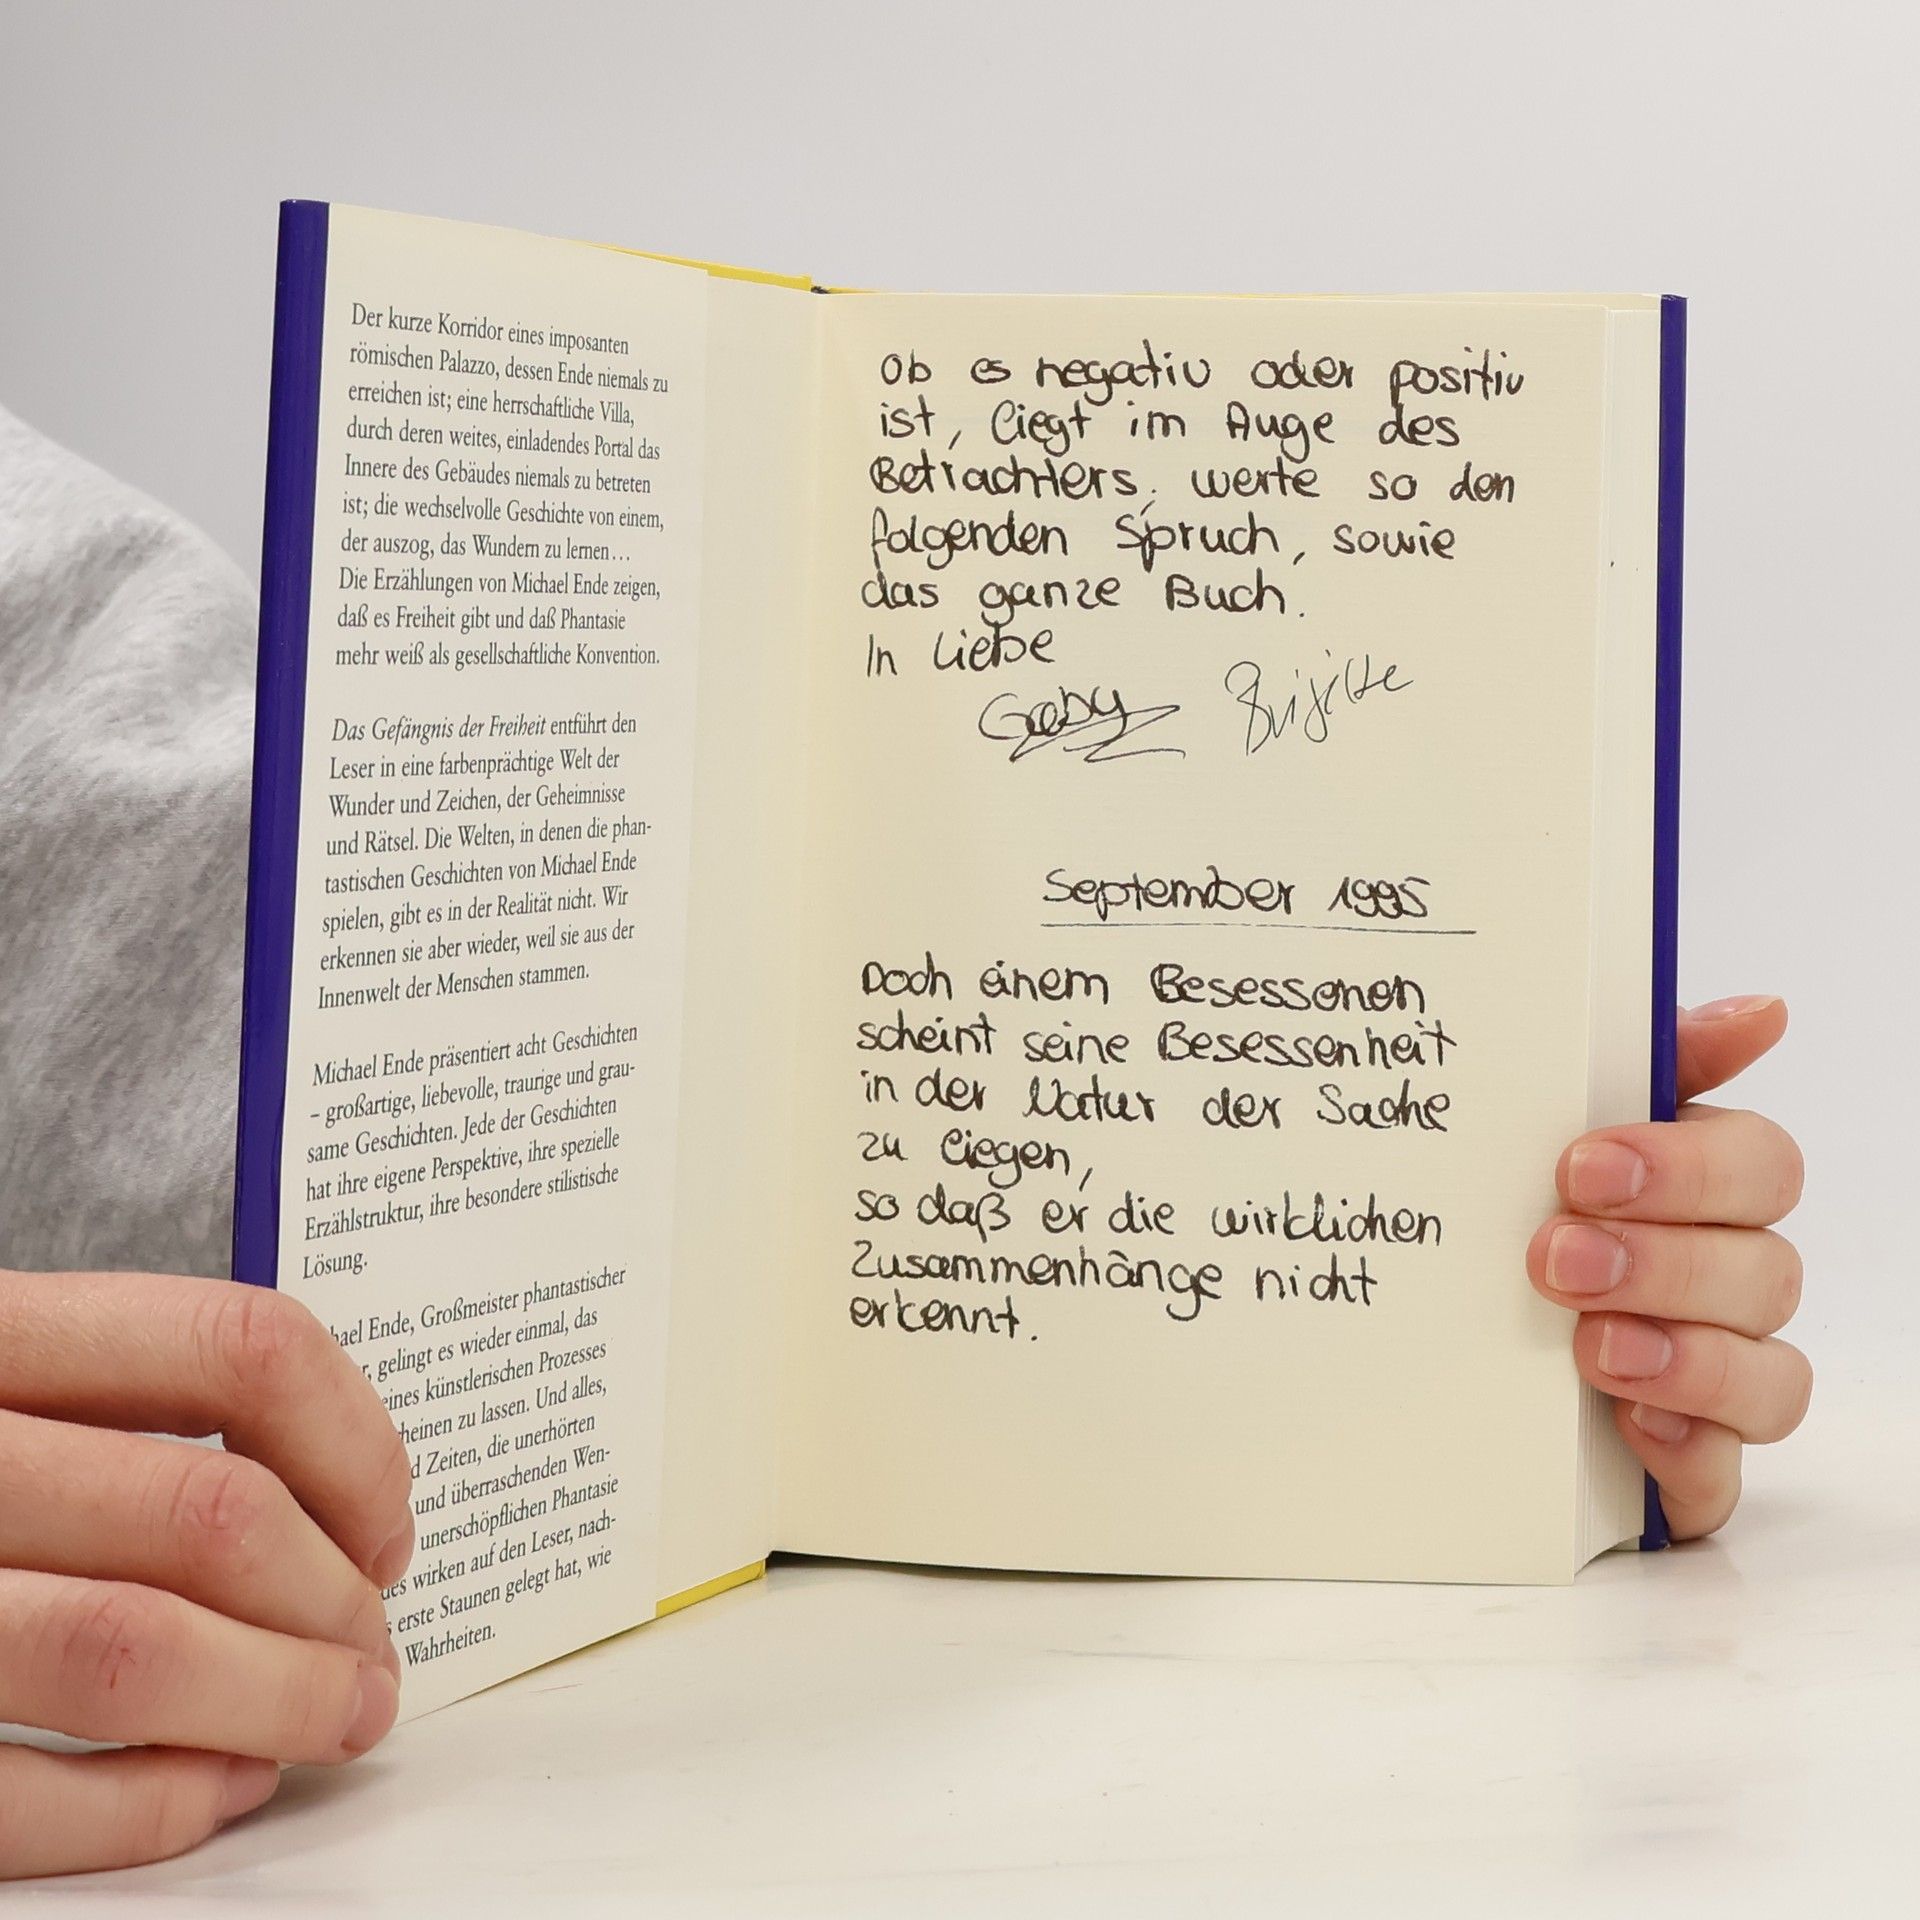 Der kurze Korridor eines imposanten
römischen Palazzo, dessen Ende niemals zu
erreichen ist; eine herrschaftliche Villa,
durch deren weites, einladendes Portal das
Innere des Gebäudes niemals zu betreten
ist; die wechselvolle Geschichte von einem,
der auszog, das Wundern zu lernen...
Die Erzählungen von Michael Ende zeigen,
daß es Freiheit gibt und daß Phantasie
mehr weiß als gesellschaftliche Konvention.
Das Gefängnis der Freiheit entführt den
Leser in eine farbenprächtige Welt der
Wunder und Zeichen, der Geheimnisse
und Rätsel. Die Welten, in denen die phan-
tastischen Geschichten von Michael Ende
spielen, gibt es in der Realität nicht. Wir
erkennen sie aber wieder, weil sie aus der
Innenwelt der Menschen stammen.
Michael Ende präsentiert acht Geschichten
– großartige, liebevolle, traurige und grau-
same Geschichten. Jede der Geschichten
hat ihre eigene Perspektive, ihre spezielle
Erzählstruktur, ihre besondere stilistische
Lösung.
Ende, Großmeister phantastischer
gelingt es wieder einmal, das
eines künstlerischen Prozesses
zu lassen. Und alles,
Zeiten, die unerhörten
und überraschenden Wen-
unerschöpflichen Phantasie
wirken auf den Leser, nach-
erste Staunen gelegt hat, wie
Wahrheiten.
Ob es negativ oder positiv
ist, liegt im Auge des
Betrachters, werte so den
folgenden Spruch, sowie
das ganze Buch.
In Liebe
Gaby Brigitte
September 1995
Doch einem Besessenen
scheint seine Besessenheit
in der Natur der Sache
zu liegen,
so daß er die wirklichen
Zusammenhänge nicht
erkennt.